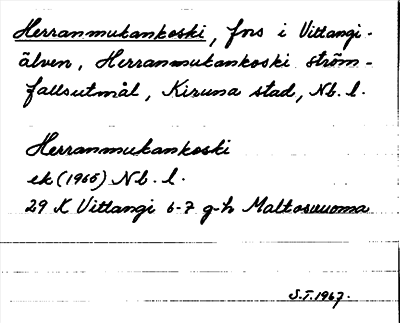 Herranmukankoski, fors i Vittangi-
älven, Herranmukankoski ström-
fallsutmål, Kiruna stad, Nb. l.
Herranmukankoski
ek (1965) Nb. l.
29 K Vittangi 6-7 g-h Maltosuuoma
S.T. 1967.